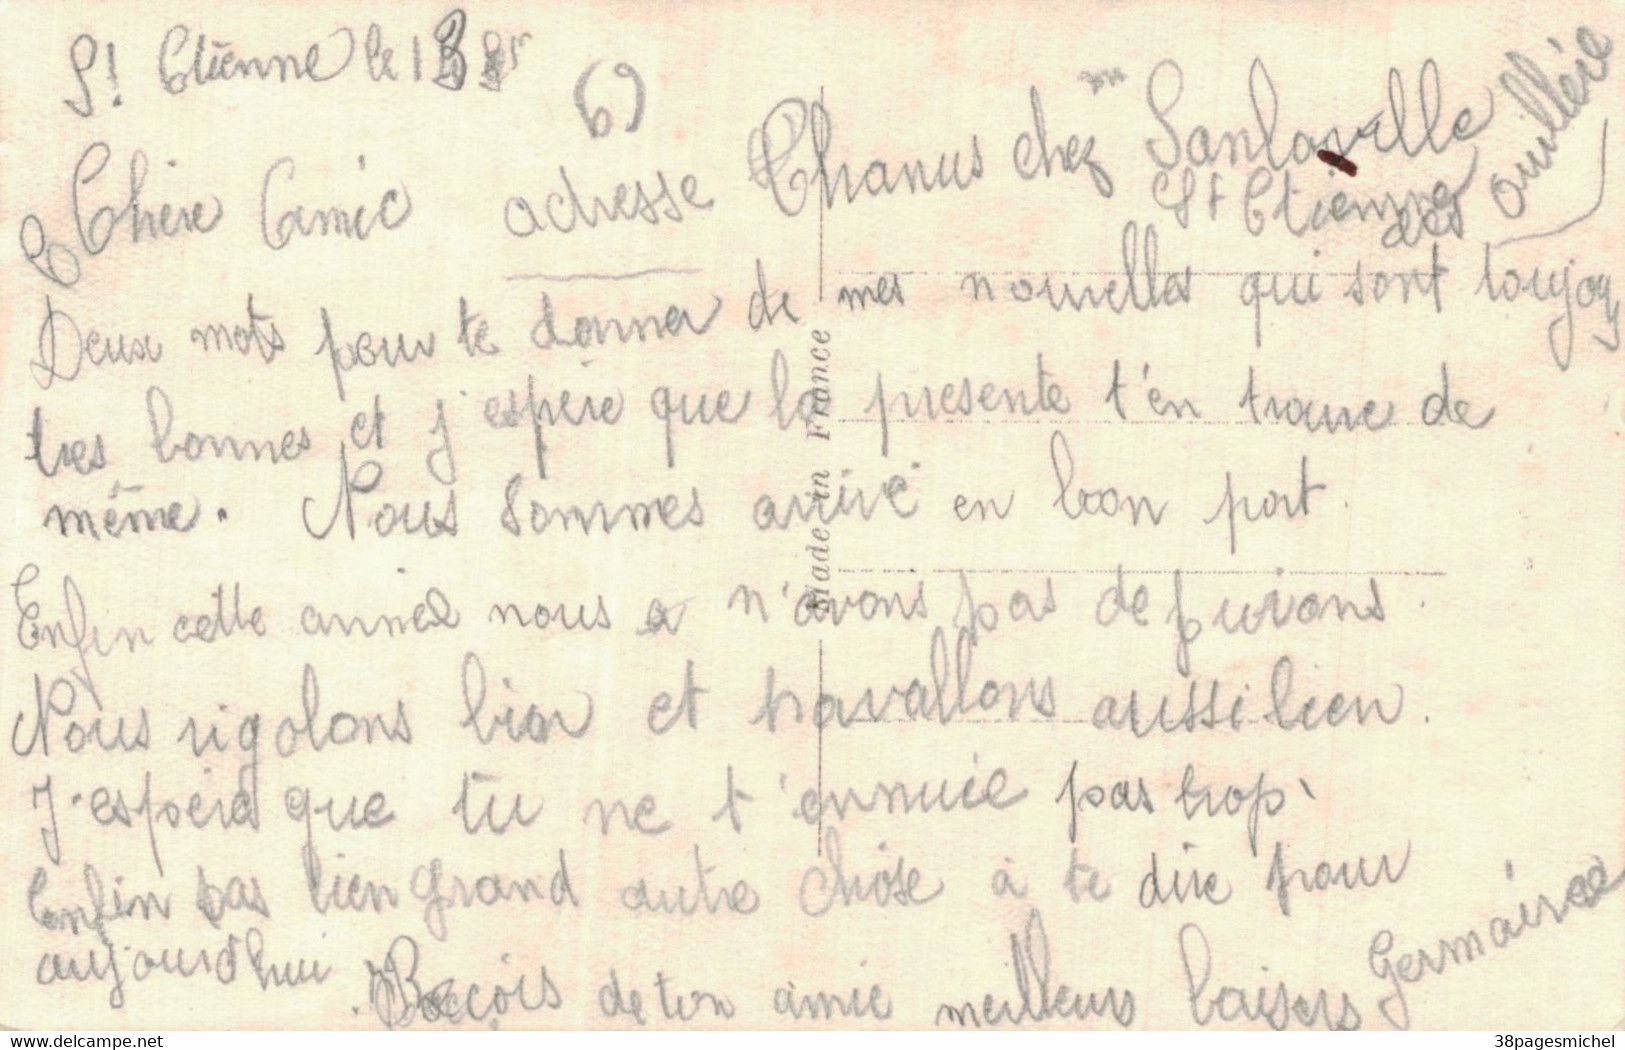 St Etienne le 13
6)
Chère Amie adresse Chanus chez Mr Sanlaville
St Etienne des oullière
Deux mots pour te donner de mes nouvelles qui sont toujour
tres bonnes et j'espère que la presente t'en trouve de
même. Nous sommes arrivé en bon port.
Enfin cette année nous n'avons pas de purions.
Nous rigolons bien et travallons aussi bien.
J'espère que tu ne t'ennuie pas trop.
Enfin pas bien grand autre chose à te dire pour
aujourd'hui. Reçois de ton amie meilleurs baisers Germaine
Made in France
www.delcampe.net
38pagesmichel